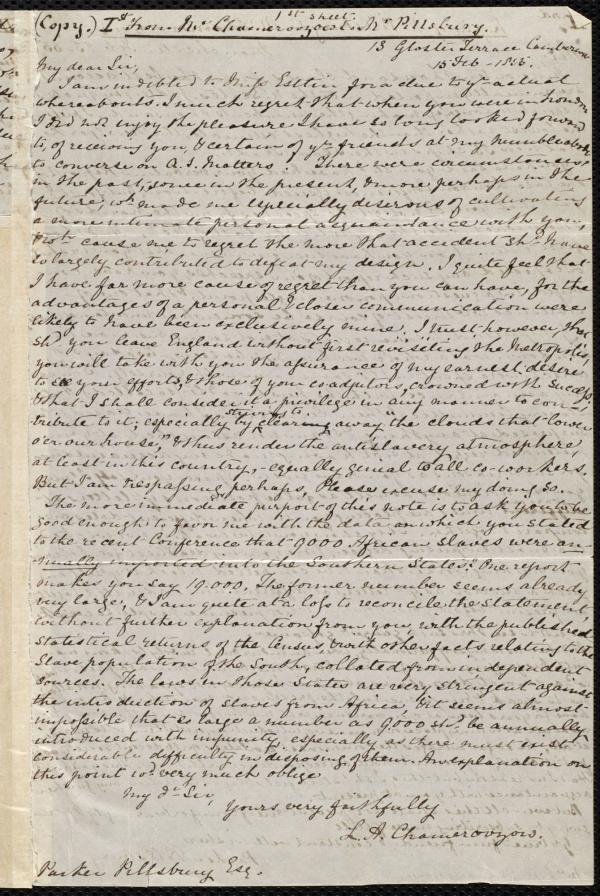 1st sheet.
(Copy.) Ist from Mr Chamerovzow to Mr Pillsbury.
13 Gloster Terrace Camberwell
15 Feb - 1855.
My dear Sir,
I am indebted to Miss Estlin for a clue to yr actual
whereabouts. I much regret that when you were in London
I did not enjoy the pleasure I have so long looked forward
to, of receiving you, & certain of yr friends at my humble abode,
to converse on A.S. Matters. There were circumstances
in the past, some in the present, & more perhaps in the
future, wh. made me especially desirous of cultivating
a more intimate personal acquaintance with you,
& wh cause me to regret the more that accident shd. have
so largely contributed to defeat my design. I quite feel that
I have far more cause of regret than you can have, for the
advantages of a personal & closer communication were
likely to have been exclusively mine. I trust however, that
shd you leave England without first revisiting the Metropolis,
you will take with you the assurance of my earnest desire
to see your efforts, & those of your coadjutors, crowned with success,
& that I shall consider it a privilege in any manner to con-
tribute to it; especially by trying to clearing away "the clouds that lower
o'er our house," & thus render the antislavery atmosphere,
at least in this country, - equally genial to all co-workers.
But I am trespassing perhaps, Please excuse my doing so.
The more immediate purport of this note is to ask you to be
good enough to favor me with the data on which you stated
to the recent Conference that 9000 African slaves were an-
nually imported into the Southern States. One report
makes you say 19.000. The former number seems already
very large, & I am quite at a loss to reconcile the statement,
without further explanation from you, with the published
statistical returns of the Census, & with other facts relating to the
Slave population of the South, collated from independent
sources. The laws in those States are very stringent against
the introduction of slaves from Africa, & it seems almost
impossible that so large a number as 9,000 shd. be annually
introduced with impunity, especially as there must exist
considerable difficulty in disposing of them. An explanation on
this point wd. very much oblige
My dr Sir,
Yours very faithfully
L. A. Chamerovzow.
Parker Pillsbury Esq.